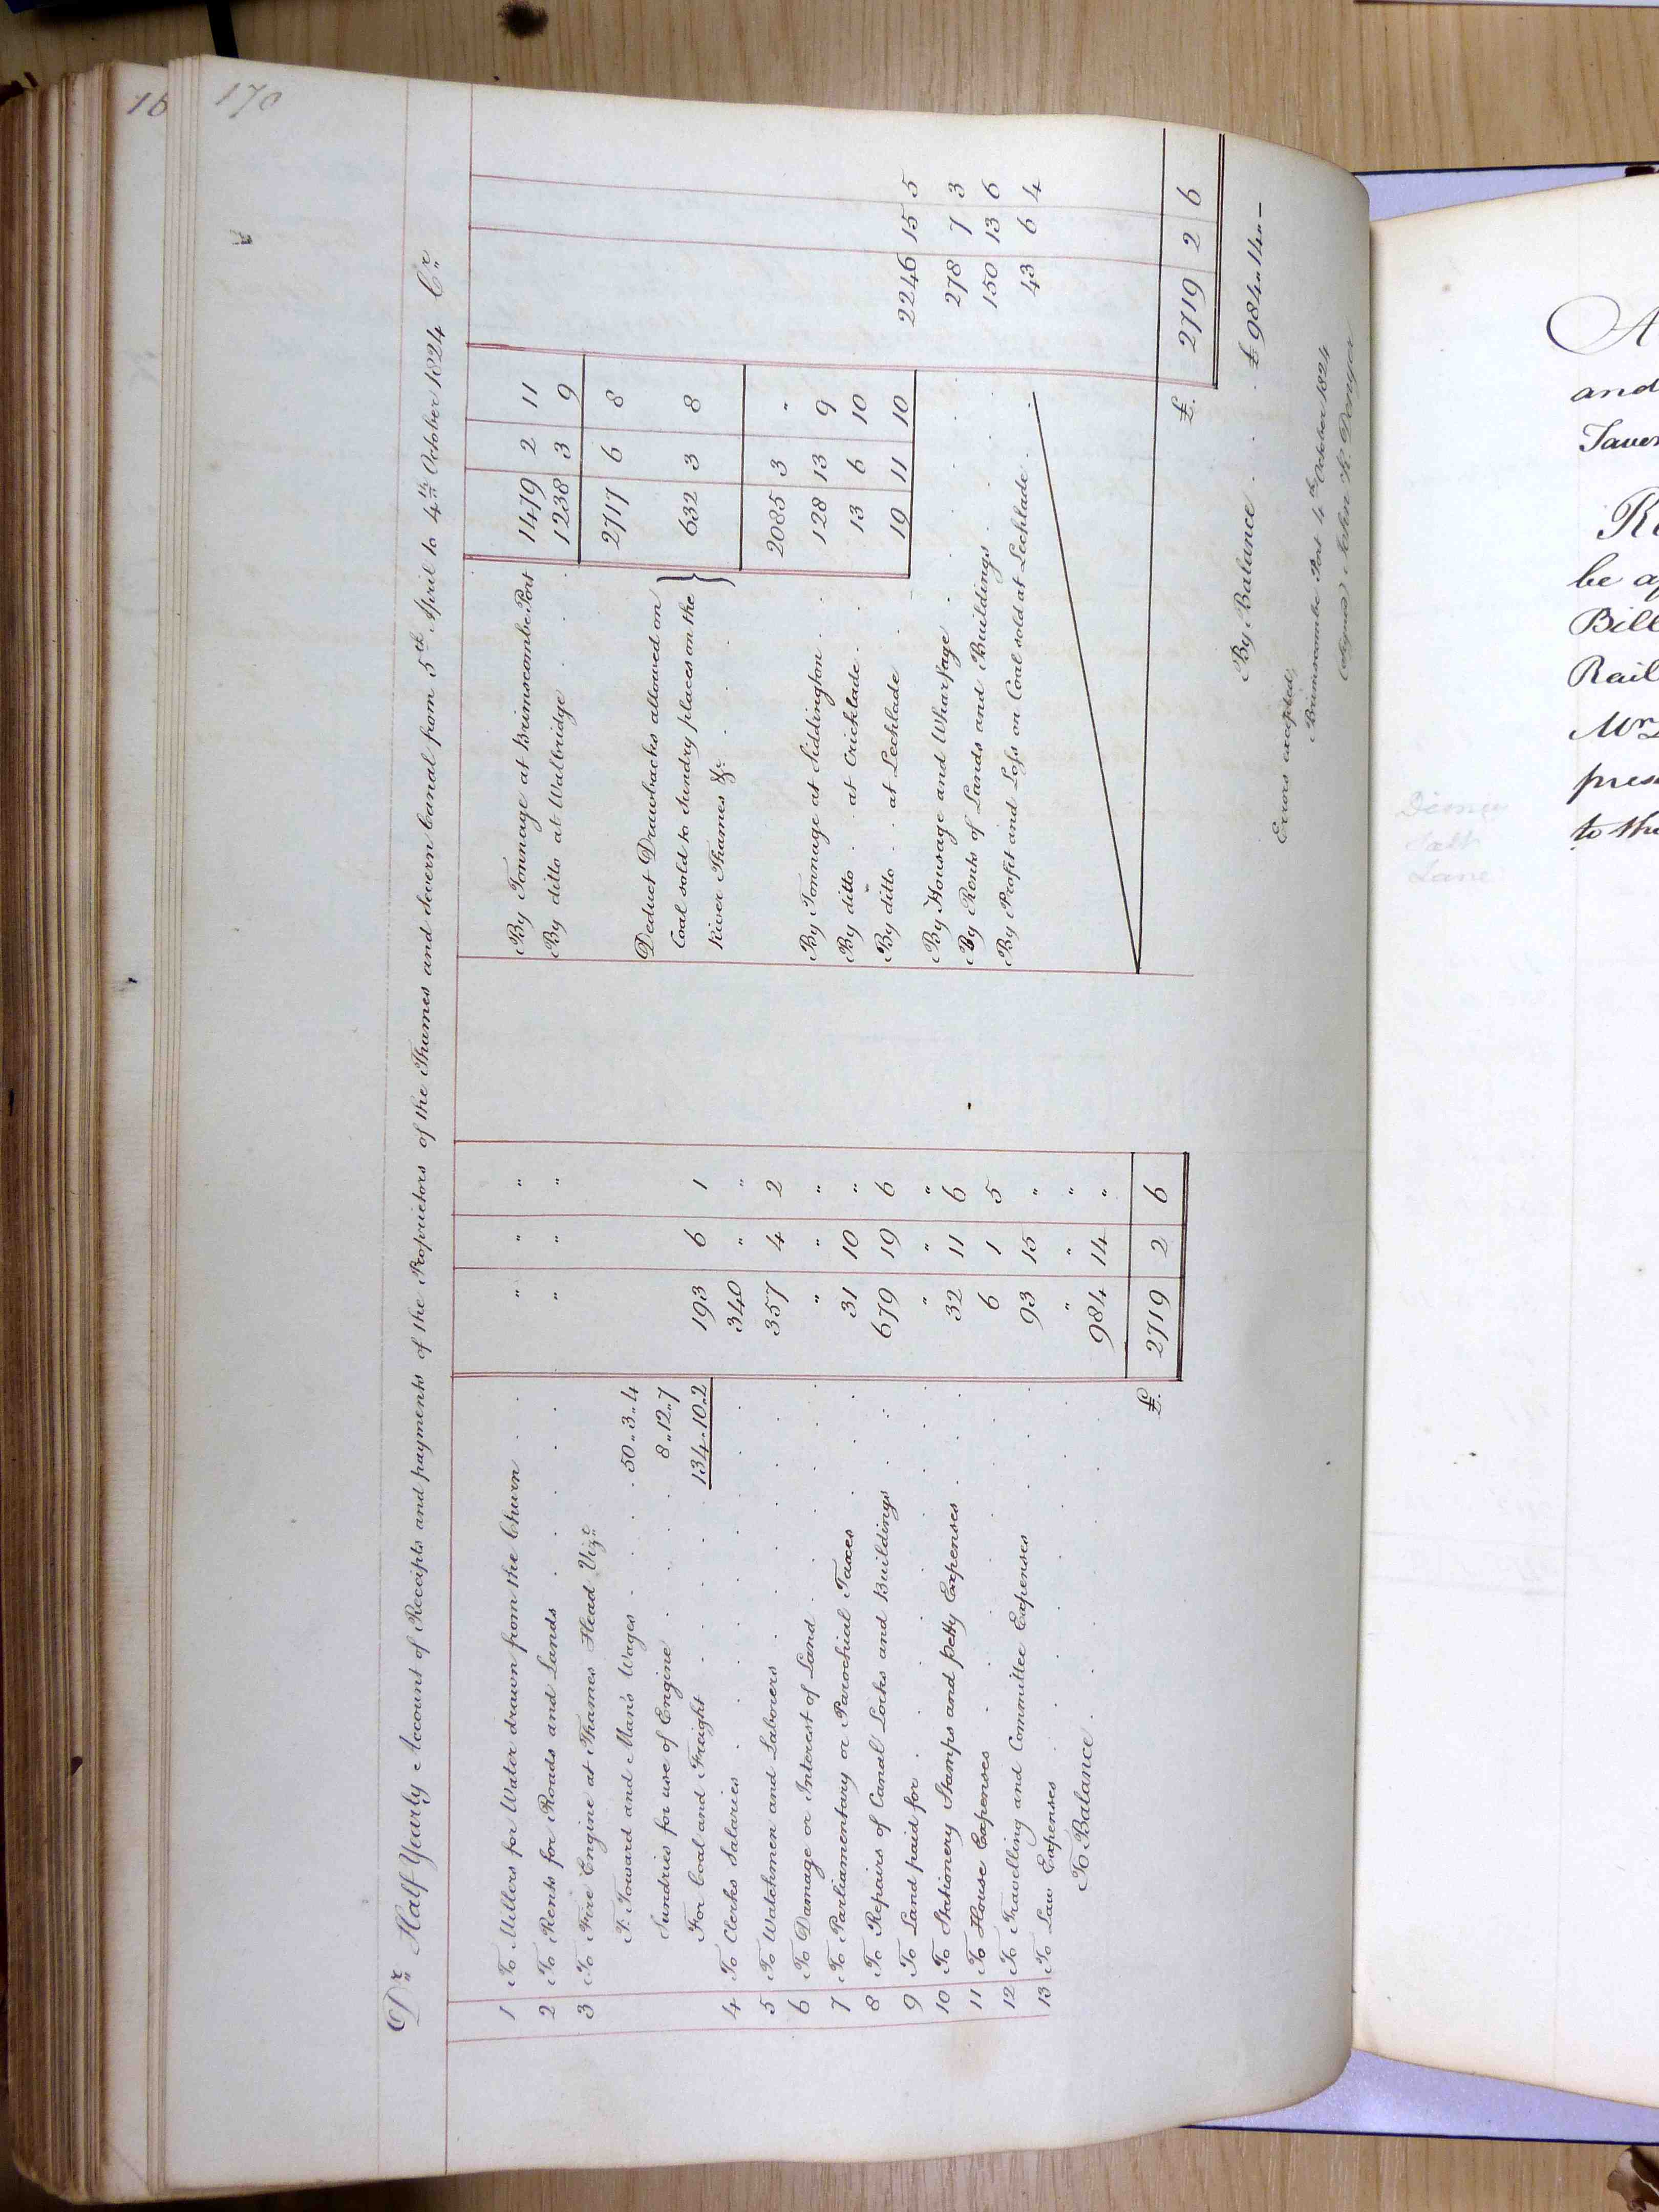 16
170
Dr. Half Yearly Account of Receipts and payments of the Proprietors of the Thames and Severn Canal from 5th April to 4th October 1824 Cr.
1 To Millers for Water drawn from the Churn . . " " "
2 To Rents for Roads and Lands . . . . " " "
3 To Fire Engine at Thames Head Vizt
T. Toward and Man's Wages . . . 50..3..4
Sundries for use of Engine . . . 8..12..7
For Coal and Freight . . . . 134..10..2 193 6 1
4 To Clerks Salaries . . . . 340 " "
5 To Watchmen and Laborers . . . . 357 4 2
6 To Damage or Interest of Land . . . " " "
7 To Parliamentary or Parochial Taxes . . 31 10 "
8 To Repairs of Canal Locks and Buildings . . 679 19 6
9 To Land paid for . . . . " " "
10 To Stationery Stamps and petty Expenses . . 32 11 6
11 To House Expenses . . . . 6 1 5
12 To Travelling and Committee Expenses . . 93 15 "
13 To Law Expenses . . . . " " "
To Balance . . . . 984 14 "
£. 2719 2 6
By Tonnage at Brimscombe Port 1479 2 11
By ditto at Walbridge . . 1238 3 9
2717 6 8
Deduct Drawbacks allowed on
Coal sold to Sundry places on the 632 3 8
River Thames &c. . .
2085 3 "
By Tonnage at Siddington . 128 13 9
By ditto . at Cricklade . 13 6 10
By ditto . . at Lechlade . 19 11 10 2246 15 5
By Housage and Wharfage . . . 278 7 3
By Rents of Lands and Buildings . . 150 13 6
By Profit and Loss on Coal sold at Lechlade . . 43 6 4
£. 2719 2 6
By Balance . . . £984..14..–
Errors excepted
Brimscombe Port 4th October 1824
(signed) John H. Denyer
A
and
Taver
Re
be a
Bill
Rail
Mr
pres
to the